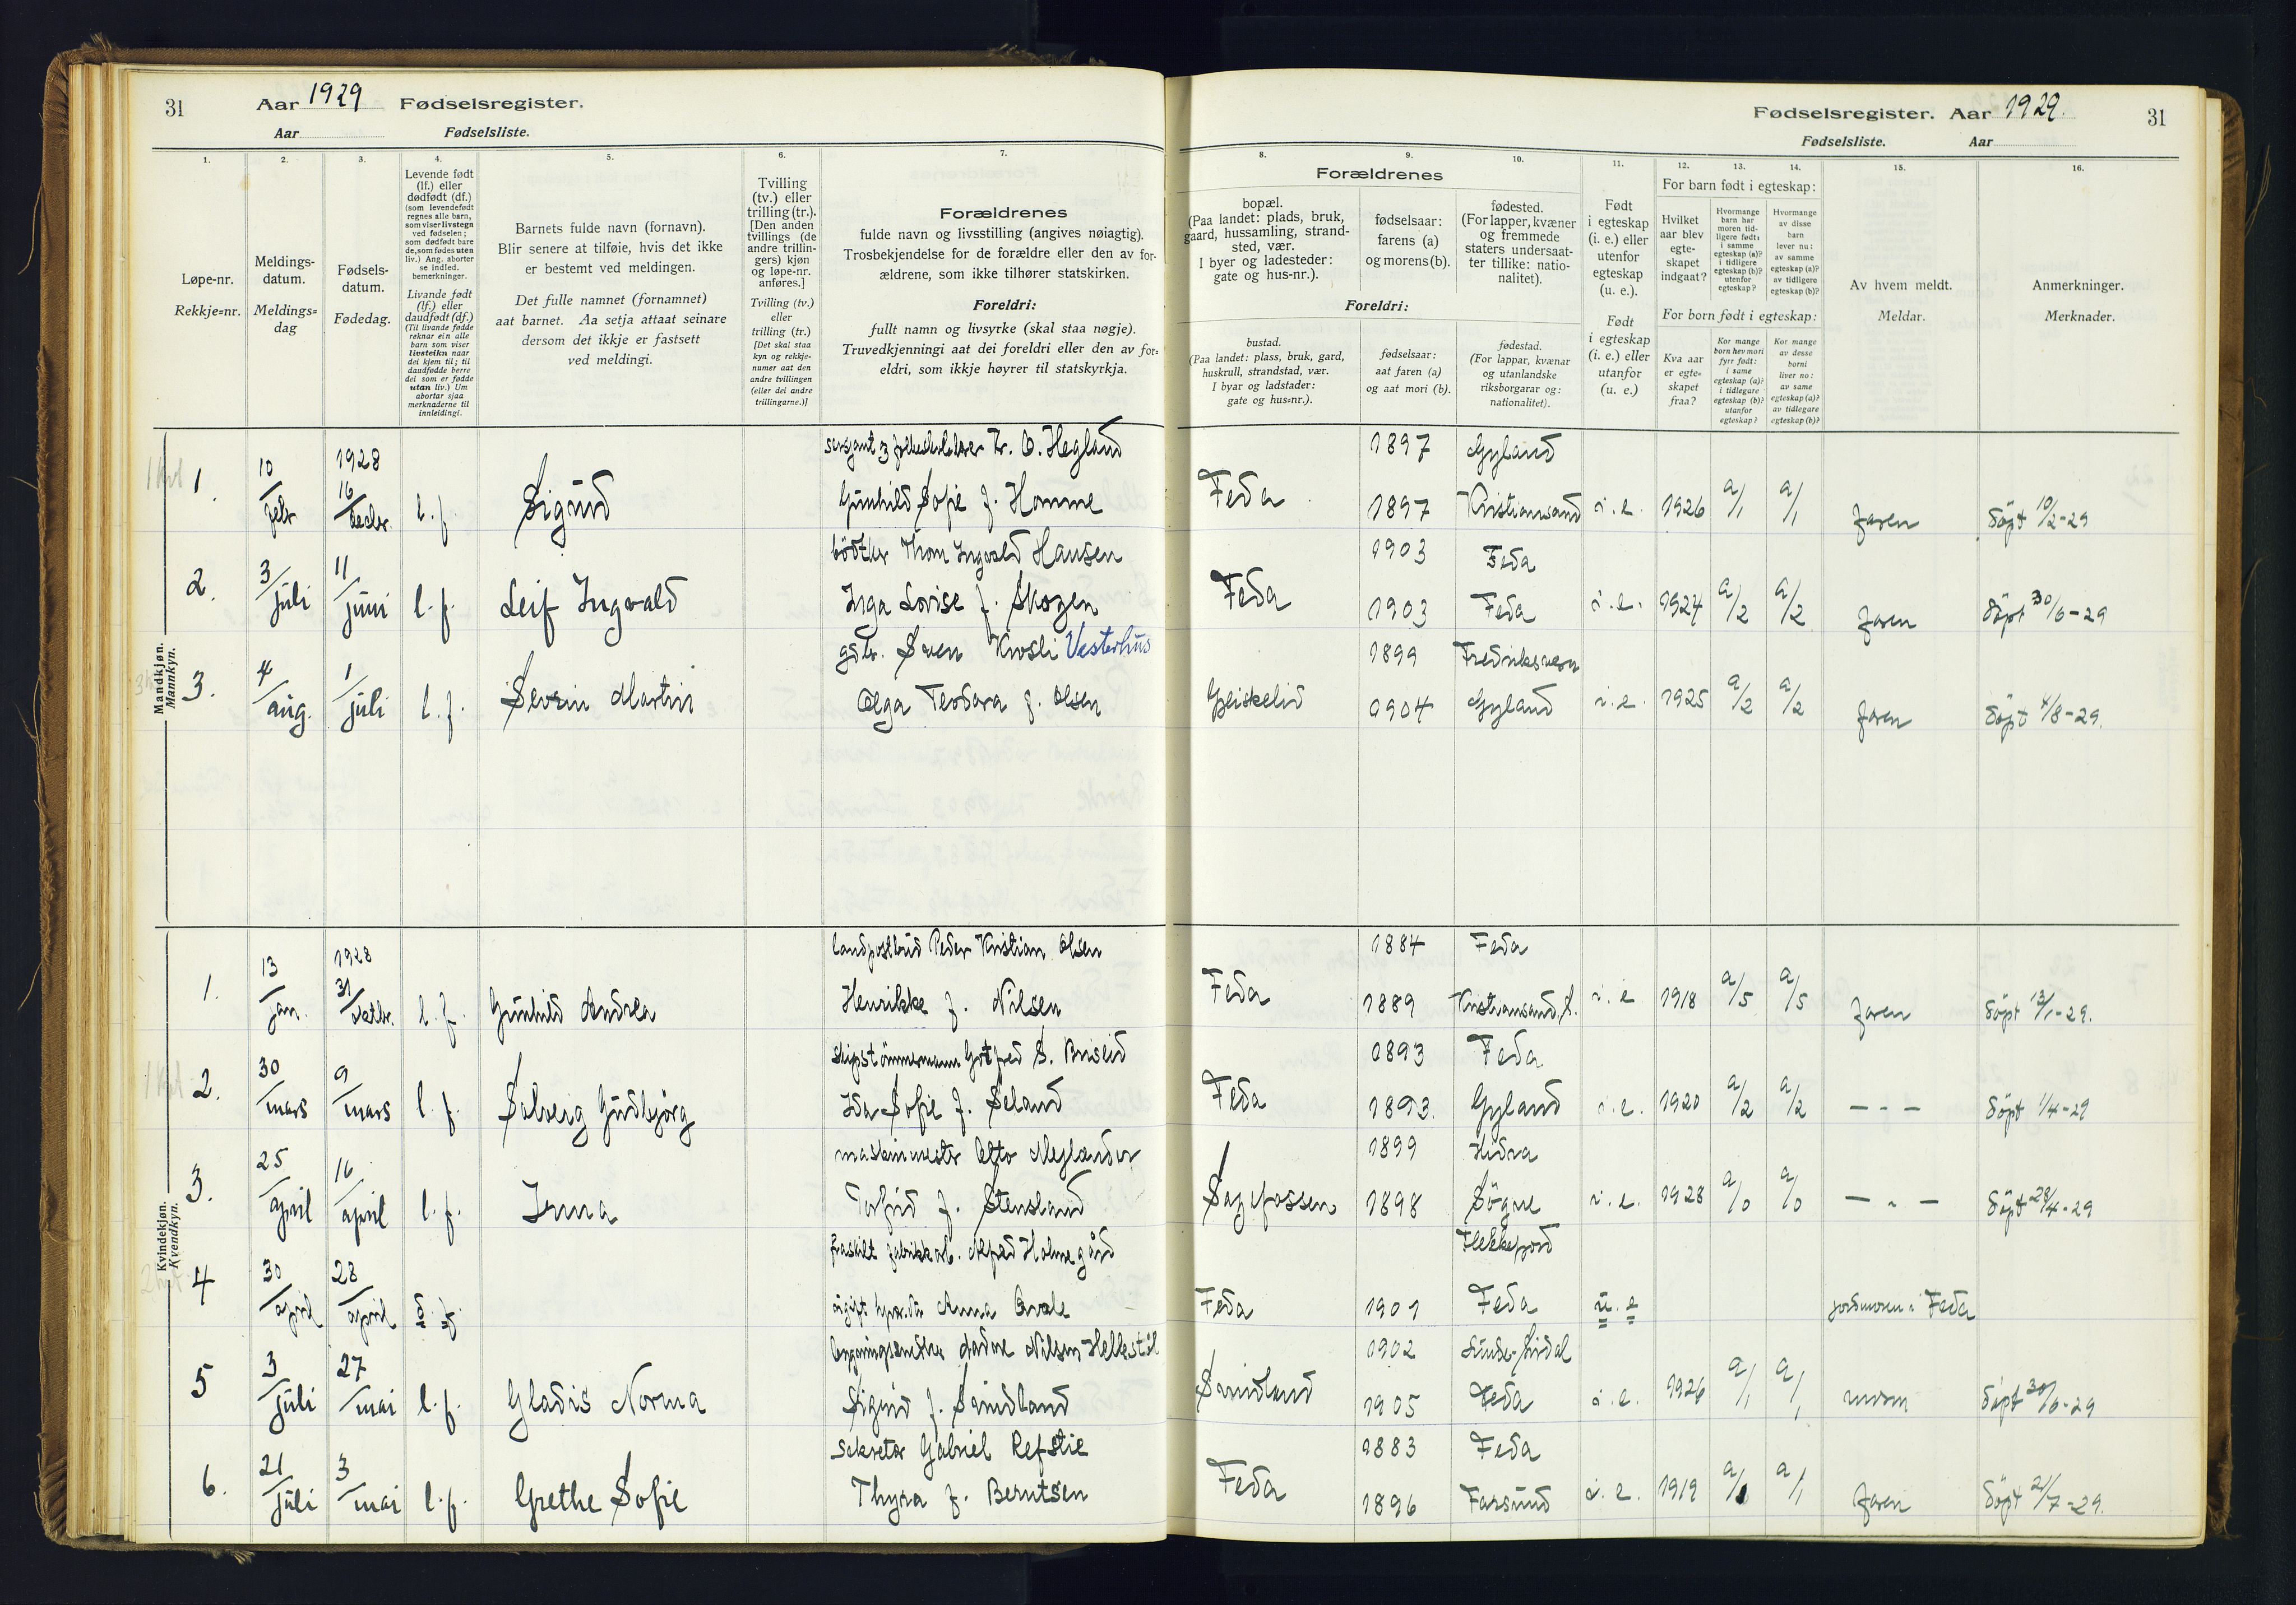 31 Aar 1929 Fødselsregister.
Aar Fødselsliste.
1.
Løpe-nr.
Rekkje=nr.
2.
Meldings-
datum.
Meldings=
dag
3.
Fødsels-
datum.
Fødedag.
4.
Levende født
(lf.) eller
dødfødt (df.)
(som levendefødt
regnes alle barn,
som viser livstegn
ved fødselen;
som dødfødt bare
de, som fødes uten
liv.) Ang. aborter
se indled.
bemerkninger.
Livande født
(lf.) eller
daudfødt (df.)
(Til livande fødde
reknar ein alle
barn som viser
livsteikn naar
dei kjem til; til
daudfødde berre
dei som er fødde
utan liv.) Um
abortar sjaa
merknaderne til
innleidingi.
5.
Barnets fulde navn (fornavn).
Blir senere at tilføie, hvis det ikke
er bestemt ved meldingen.
Det fulle namnet (fornamnet)
aat barnet. Aa setja attaat seinare
dersom det ikkje er fastsett
ved meldingi.
6.
Tvilling
(tv.) eller
trilling (tr.).
[Den anden
tvillings (de
andre trillin-
gers) kjøn
og løpe-nr.
anføres.]
Tvilling (tv.)
eller
trilling (tr.)
[Det skal staa
kyn og rekkje-
numer aat den
andre tvillingen
(eller dei andre
trillingarne.)]
7.
Forældrenes
fulde navn og livsstilling (angives nøiagtig).
Trosbekjendelse for de forældre eller den av for-
ældrene, som ikke tilhører statskirken.
Foreldri:
fullt namn og livsyrke (skal staa nøgje).
Truvedkjenningi aat dei foreldri eller den av for=
eldri, som ikkje høyrer til statskyrkja.
Fødselsregister. Aar 1929. 31
Fødselsliste. Aar
8.
Forældrenes
bopæl.
(Paa landet: plads, bruk,
gaard, hussamling, strand-
sted, vær.
I byer og ladesteder:
gate og hus-nr.).
Foreldri:
bustad.
(Paa landet: plass, bruk, gard,
huskrull, strandstad, vær.
I byar og ladstader:
gate og hus=nr.).
9.
fødselsaar:
farens (a)
og morens (b).
fødselsaar:
aat faren (a)
og aat mori (b).
10.
fødested.
(For lapper, kvæner
og fremmede
staters undersaat-
ter tillike: natio-
nalitet).
fødestad.
(For lappar, kvænar
og utanlandske
riksborgarar og:
nationalitet).
11.
Født
i egteskap
(i. e.) eller
utenfor
egteskap
(u. e.).
Født
i egteskap
(i. e.) eller
utanfor
(u. e.)
12. 13. 14.
For barn født i egteskap:
Hvilket
aar blev
egte-
skapet
indgaat?
Hvormange
barn har
moren tid-
ligere født:
i samme
egteskap (a)?
i tidligere
egteskap (b)?
utenfor
egteskap?
Hvormange
av disse
barn
lever nu:
av samme
egteskap (a)?
av tidligere
egteskap (b)?
For born født i egteskap:
Kva aar
er egte-
skapet
fraa?
Kor mange
born hev mori
fyrr født:
i same
egteskap (a)?
i tidlegare
egteskap (b)?
utanfor
egteskap?
Kor mange
av desse
borni
liver no:
av same
egteskap (a)?
av tidlegare
egteskap (b)?
15.
Av hvem meldt.
Meldar.
16.
Anmerkninger.
Merknader.
Mandkjøn.
Mannkyn.
1928 O. Hegland 1897 Gyland
1. 10/febr 16/decbr. l. f. Sigurd Gunhild Sofie f. Homme Feda 1897 Kristiansand i. e. 1926 a/1 a/1 faren döpt 10/2-29
Thom Ingvald Hansen 1903 Feda
2. 3/juli 11/juni l. f. Leif Ingvald Inga Lovise f. Skogen Feda 1903 Feda i. e. 1924 a/2 a/2 faren döpt 30/6-29
Vesterhus 1899 Fredriksvern
3. 4/aug. 1/juli l. f. Severin Martin Olga Teodora f. Olsen 1904 Gyland i. e. 1925 a/2 a/2 faren döpt 4/8-29.
Kvindekjøn.
Kvendkyn.
1928 landpostbud Peder Kristian Olsen 1884 Feda
1. 13/jan. 31/ l. f. Gunhild Andrea Henrikke f. Nilsen Feda 1889 Kristiansand S. i. e 1918 a/5 a/5 faren döpt 13/1-29.
skipstömmermann Gotfred S. Brislid 1893 Feda
2. 30/mars 9/mars l. f. Solveig Gudbjörg Ida Sofie f. Seland Feda 1893. Gyland i. e. 1920 a/2 a/2 — - — döpt 1/4-29
maskinmester Otto 1899 Hidra
3. 25/april 16/april l. f. Irma f. Stensland 1898 Søgne i. e. 1928 a/0 a/0 — „ — döpt 28/4-29
fabrikkarb. Alfred Holmegård Flekkefjord
4 30/april 28/april d. f. Anna Feda 1901 Feda u. e jordmoren i Feda
Nilsen 1902
5 3/juli 27/mai l. f. Gladis Norma Sigrid f. Svindland Svindland 1905 Feda i. e. 1926 a/1 a/1 moren döpt 30/6-29
sekretær Gabriel Refstie 1883 Feda
6. 21/juli 3/mai l. f. Grethe Sofie Thyra f. Berntsen Feda 1896 Farsund i. e. 1919 a/1 a/1 faren döpt 21/7-29.